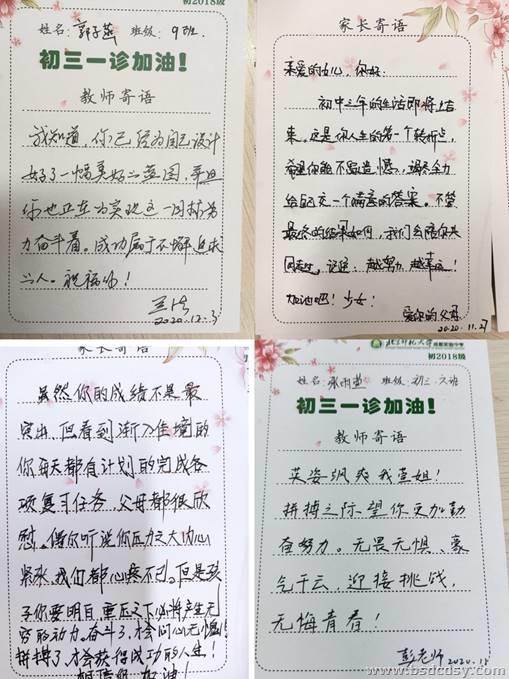 初2018级
姓名：郭子燕 班级：9班.
初三一诊加油！
教师寄语
我知道，你已经为自己设计
好了一幅美好的蓝图，并且
你也正在为实现这一目标努
力奋斗着。成功属于不懈追求
的人。祝福你！
2020.12.3
家长寄语
亲爱的女儿，你好：
初中三年的生活即将结
束。这是你人生的第一个转折点，
希望你能不留遗憾，竭尽全力
给自己交一个满意的答案。不管
最终的结果如何，我们会陪你共
同走过，记住：越努力，越幸运！
加油吧！少女！
爱你的父母
2020.11.27
家长寄语
虽然你的成绩不是最
突出，但看到渐入佳境的
你每天都有计划的完成各
项复习任务，父母都很欣
慰。偶尔听说你压力大内心
紧张，我们都心疼不已。但是孩
子你要明白，重压之下必将产生无
穷的动力。奋斗了，才会问心无愧！
拼搏了，才会获得成功的人生！
加油！
北京师范大学
初2018级
姓名： 班级：初三.九班
初三一诊加油！
教师寄语
英姿飒爽我萱姐！
拼搏之际，望你更加勤
奋努力。无畏无惧、豪
气干云，迎接挑战，
无悔青春！
彭老师 2020.12
www.bsdcdsy.com